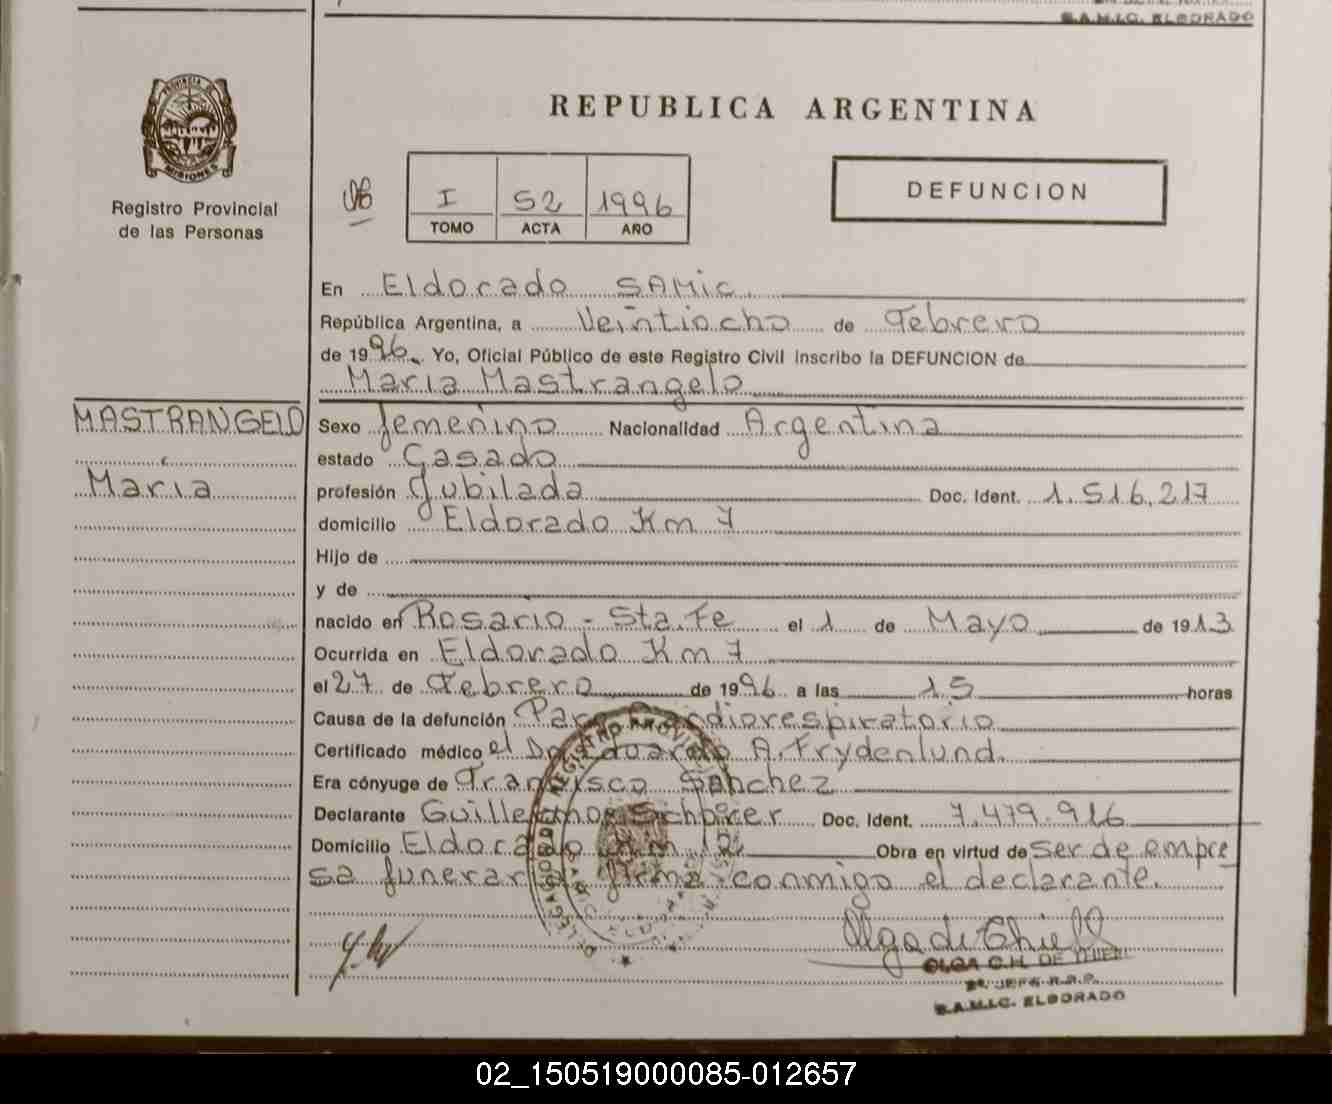 S.A.M.I.C. ELDORADO
PROVINCIA DE
MISIONES
Registro Provincial
de las Personas
REPUBLICA ARGENTINA
I 52 1996
TOMO ACTA AÑO
DEFUNCION
En Eldorado SAMic.
República Argentina, a Veintiocho de Febrero
de 1996. Yo, Oficial Público de este Registro Civil inscribo la DEFUNCION de
Maria Mastrangelo
MASTRANGELO
Maria
Sexo femenino Nacionalidad Argentina
estado Casado
profesión Jubilada Doc. Ident. 1.516.217
domicilio Eldorado Km 7
Hijo de
y de
nacido en Rosario - Sta. Fe el 1 de Mayo de 1913
Ocurrida en Eldorado Km 7
el 27 de Febrero de 1996 a las 15 horas
Causa de la defunción Paro Cardiorespiratorio
Certificado médico el Dr. Eduardo A. Frydenlund.
Era cónyuge de Francisco Sanchez
Declarante Guillermo Doc. Ident. 7.479.916
Domicilio Eldorado Km Obra en virtud de ser de empre
sa funeraria firma conmigo el declarante.
REGISTRO PROVINCIAL
DELEGACION
OLGA C.H. DE
2º JEFE R.P.P.
S.A.M.I.C. ELDORADO
02_150519000085-012657